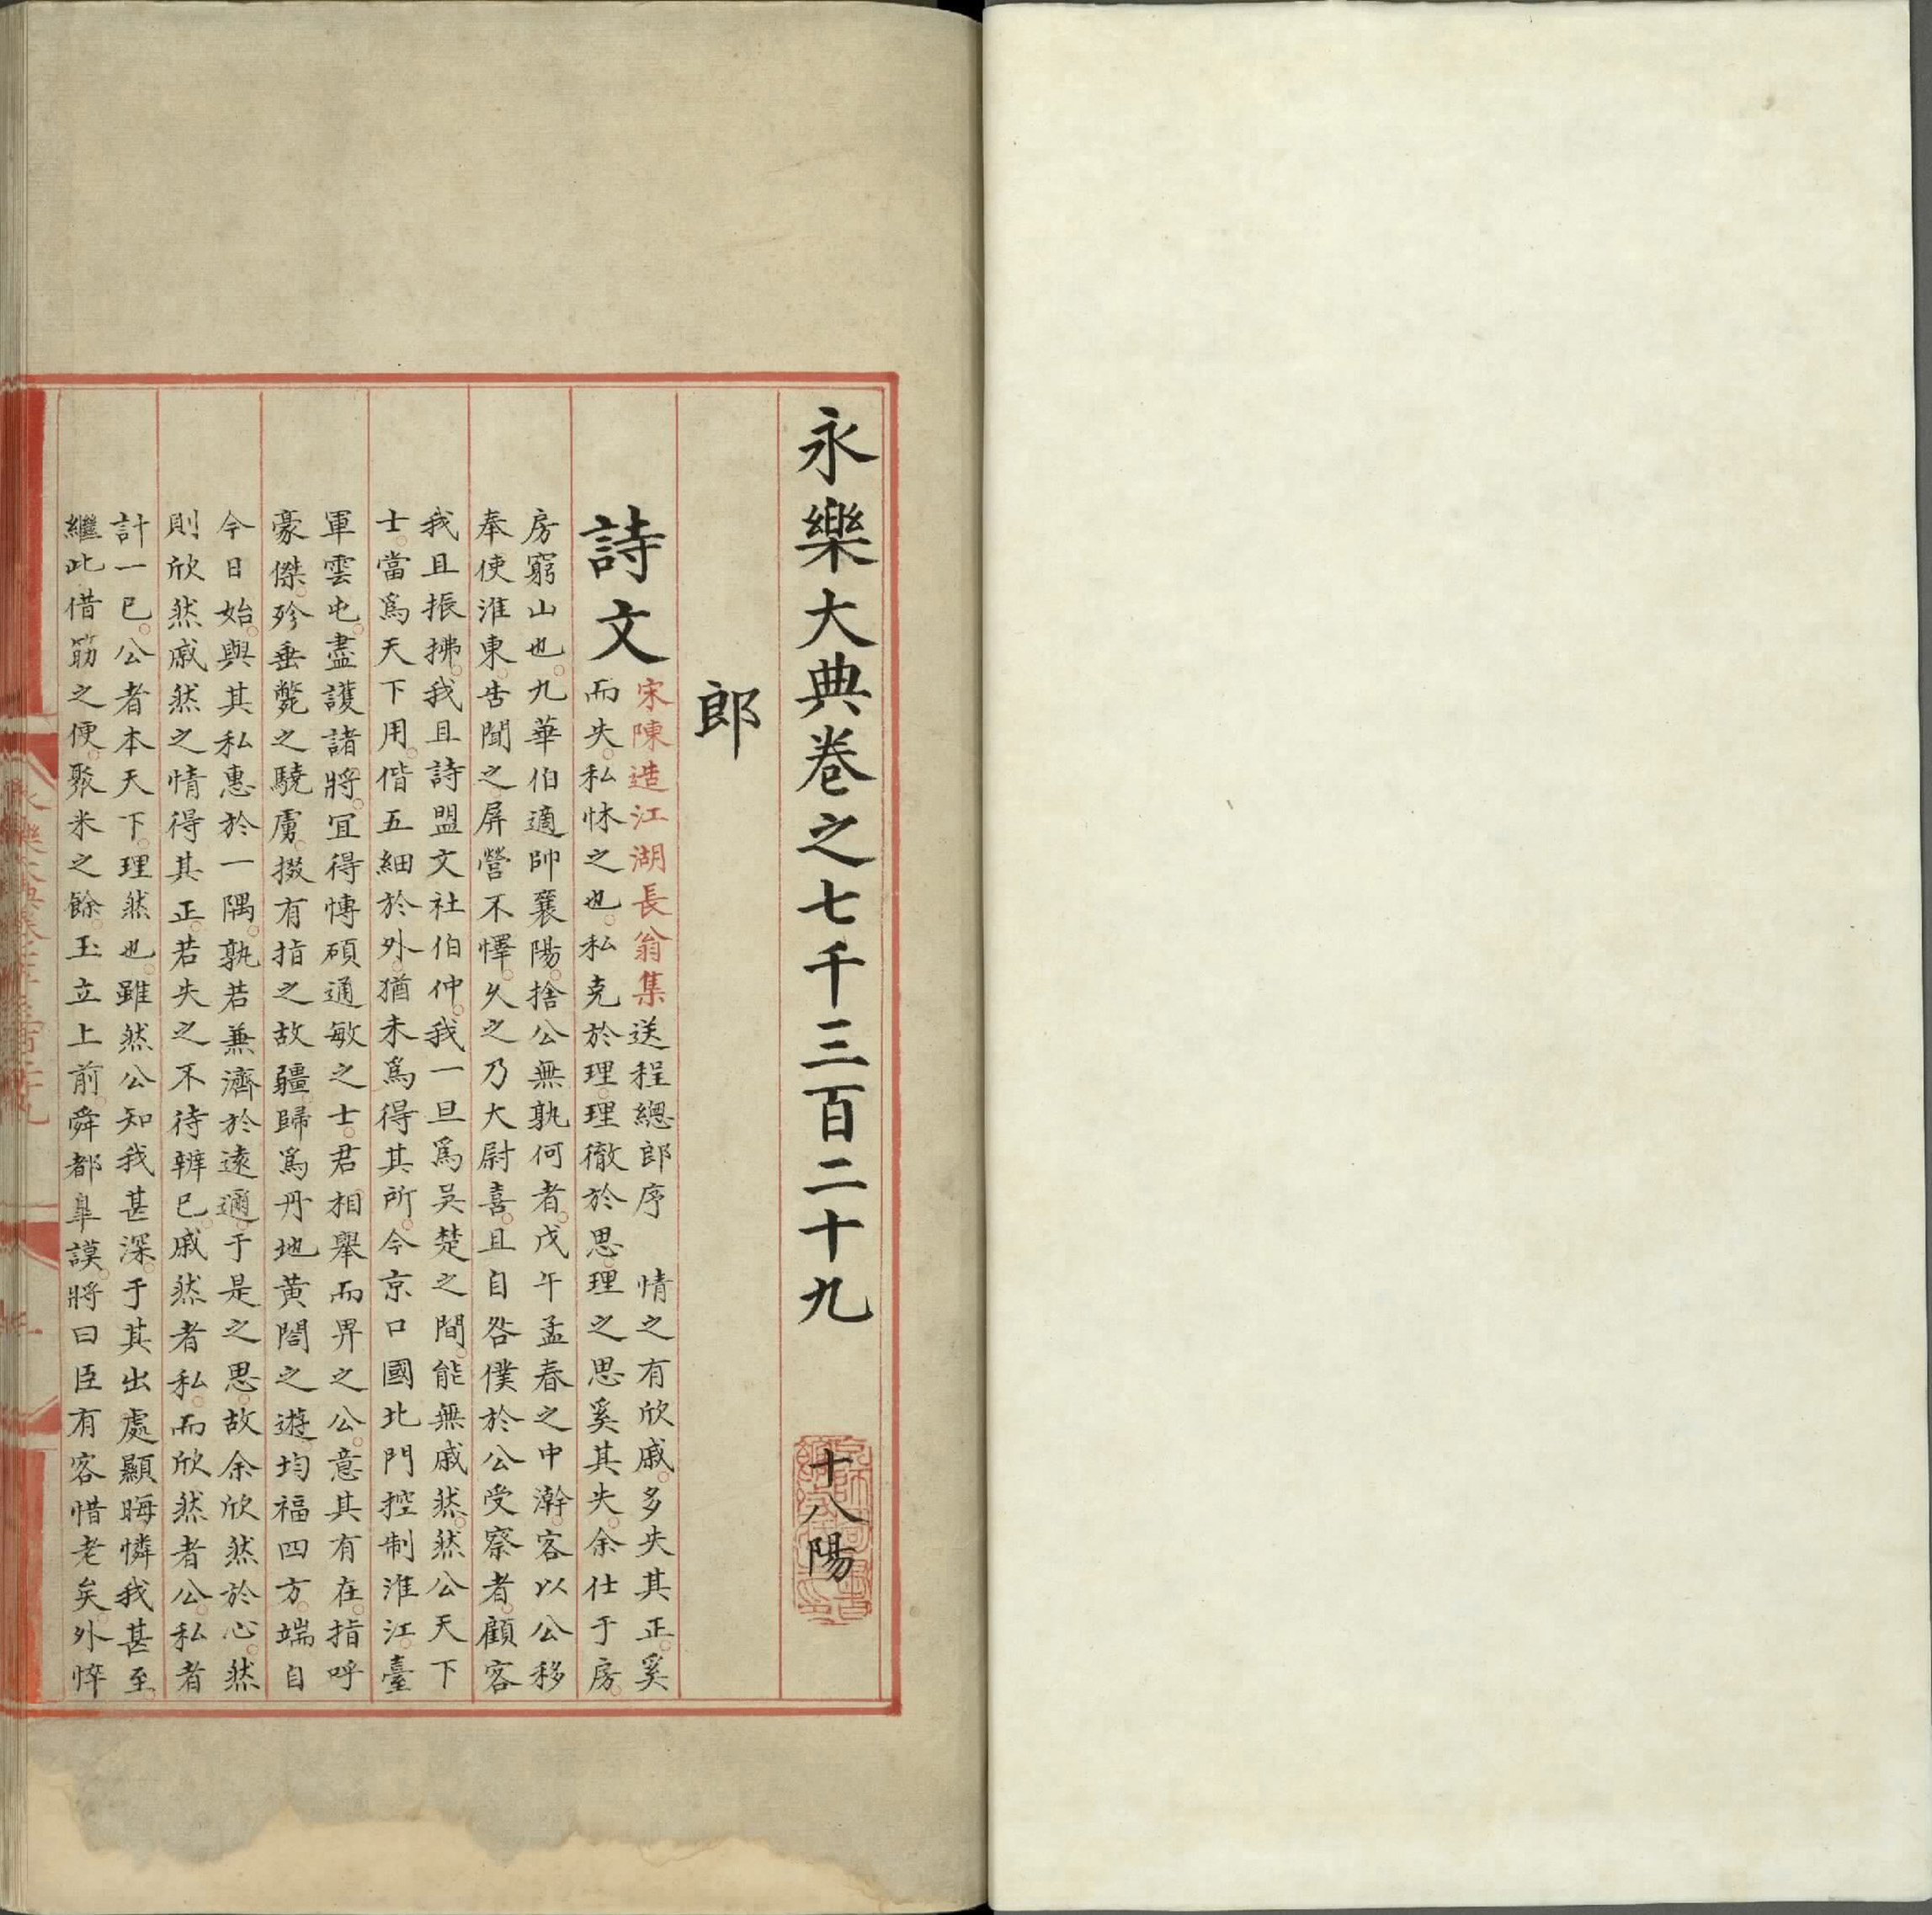 永樂大典卷之七千三百二十九 十八陽
郎
詩文 宋陳造江湖長翁集送程總郎序 情之有欣戚。多失其正。奚
而失。私怵之也。私克於理。理徹於思。理之思奚其失。余仕于房。
房窮山也。九華伯適帥襄陽。捨公無孰何者。戊午孟春之中澣。客以公移
奉使淮東。告聞之。屏營不懌。久之乃大尉喜。且自咎僕於公受察者。顧客
我且振拂。我且詩盟文社伯仲。我一旦爲吴楚之間。能無戚然。然公天下
士。當爲天下用。偕五細於外。猶未爲得其所。今京口國北門控制淮江。臺
軍雲屯。盡護諸將。宜得慱碩通敏之士。君相舉而畀之公。意其有在。指呼
豪傑。殄垂斃之驍虜。掇有指之故疆。歸爲丹地黄閤之遊。均福四方。端自
今日始。與其私惠於一隅。孰若兼濟於遠邇。于是之思。故余欣然於心。然
則欣然戚然之情得其正。若失之不待辨已。戚然者私。而欣然者公。私者
計一已。公者本天下。理然也。雖然公知我甚深。于其出處顯晦憐我甚至。
繼此借筯之便。聚米之餘。玉立上前。舜都皐謨。將曰臣有客惜老矣。外悴